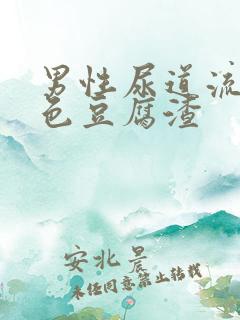 男性尿道流
色豆腐渣
安北晨
未经同意禁止转载